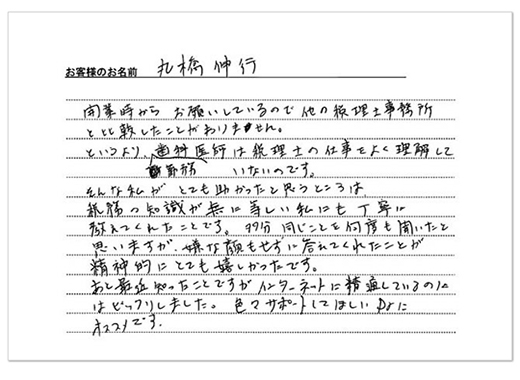 お客様のお名前 丸橋伸行
開業時から お願いしているので他の税理士事務所
と比較したことがありません。
というより、歯科医師は税理士の仕事をよく理解して
勤務 いないのです。
そんな私が とても助かったと思うところは
税務の知識が無に等しい私にも丁寧に
教えてくれたことです。多分、同じことを何度も聞いたと
思いますが、嫌な顔もせずに答えてくれたことが
精神的にとても嬉しかったです。
あと最近知ったことですがインターネットに精通しているのに
はビックリしました。色々サポートしてほしいDrに
オススメです。